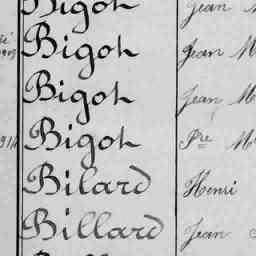 Bigot Jean
Bigot Jean M
Bigot Jean M
Bigot Pre M
Bilard Henri
Billard Jean